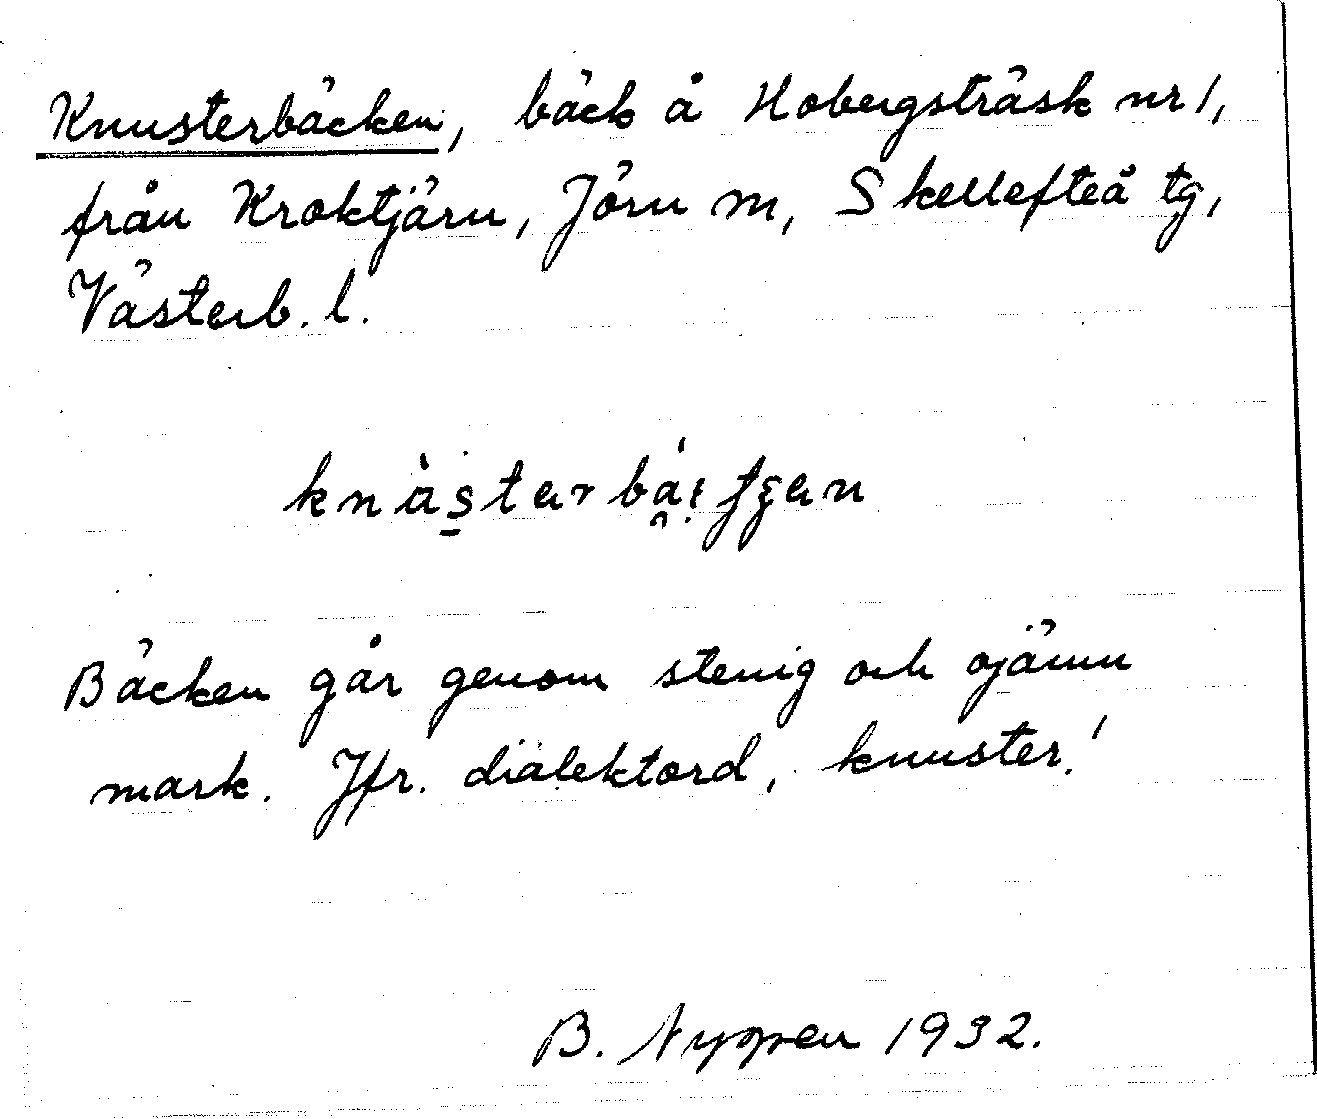 Knusterbäcken, bäck å Hobergsträsk nr 1,
från Kroktjärn, Jörn m, Skellefteå tg,
Västerb. l.
Bäcken går genom stenig och ojämn
mark. Jfr. dialektord, knuster!
B. Nyppen 1932.